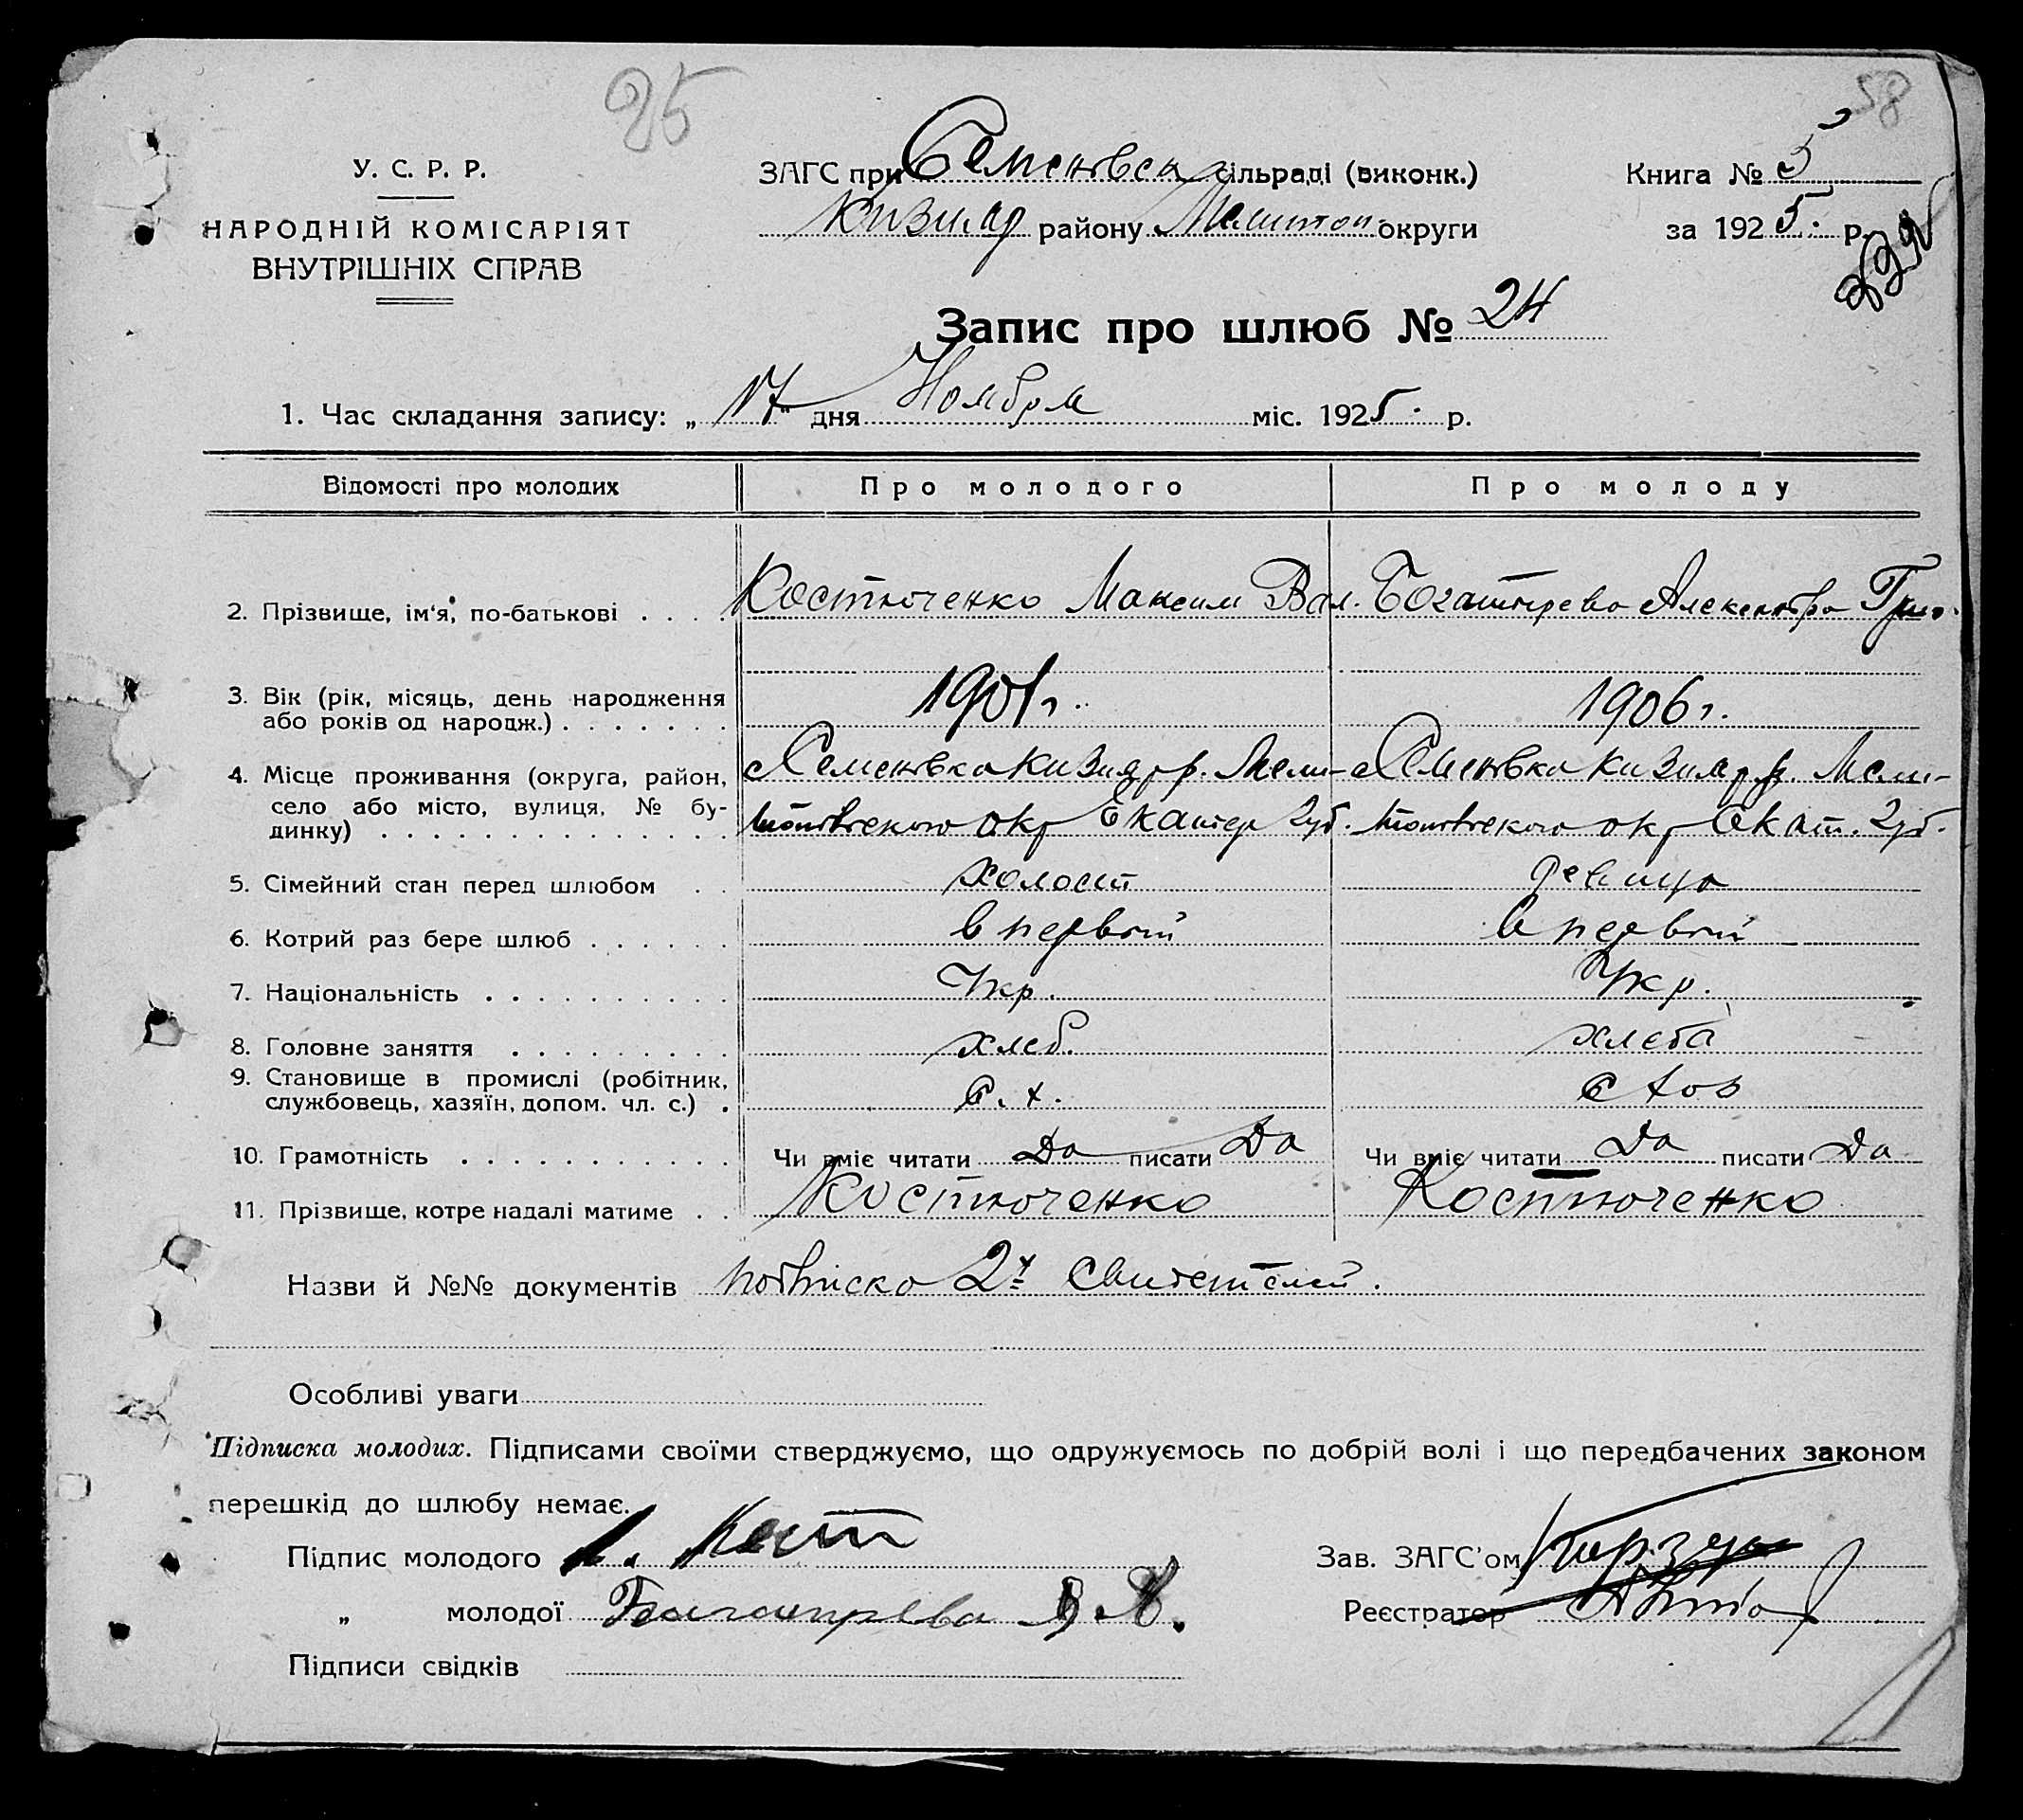 25
58
У. С. Р. Р.
НАРОДНІЙ КОМІСАРІЯТ
ВНУТРІШНІХ СПРАВ
ЗАГС при Семеновск сільраді (виконк.)
Кизияр району Мелитоп округи
Книга № 5
за 1925. р.
Запис про шлюб № 24
1. Час складання запису: „ 17 " дня Ноября міс. 1925. р.
Відомості про молодих Про молодого Про молоду
2. Прізвище, ім'я, по-батькові . . . . Костюченко Максим Вал. Богатырева Александра Григ.
3. Вік (рік, місяць, день народження
або років од народж.) . . . . . . . 1901 г. 1906 г.
4. Місце проживання (округа, район,
село або місто, вулиця, № бу-
динку) . . . . . . . . . . . . . .
с Семеновка Кизияр р. Мели- с Семеновка Кизияр р. Мели-
топовского окр Екатер губ. топовского окр Екат. губ.
5. Сімейний стан перед шлюбом . . холост девица
6. Котрий раз бере шлюб . . . . . . в первый в первый
7. Національність . . . . . . . . . . Укр. Укр.
8. Головне заняття . . . . . . . . . хлеб. хлеба
9. Становище в промислі (робітник,
службовець, хазяїн, допом. чл. с.) . с. х. с хоз
10. Грамотність . . . . . . . . . . . Чи вміє читати Да писати Да Чи вміє читати Да писати Да
11. Прізвище, котре надалі матиме . . Костюченко Костюченко
Назви й №№ документів подписка 2х свидетелей.
Особливі уваги
Підписка молодих. Підписами своїми стверджуємо, що одружуємось по добрій волі і що передбачених законом
перешкід до шлюбу немає.
Підпис молодого Кост
Зав. ЗАГС'ом
„ молодої Богатырева
Реєстратор
Підписи свідків